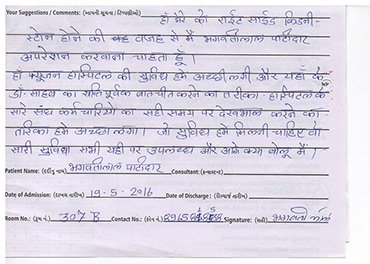 Your Suggestions / Comments: (આપની સૂચના / ટિપ્પણીઓ)
हाँ मेरे को राईट साईड किडनी-
स्टोन होने की वजह से मैं भगवतीलाल पाटीदार
अपरेशन करवाना चाहता हूँ।
हाँ हॉस्पिटल की सुविधा हमे अच्छी लगी और यहाँ के
डॉ. साहब का शांति पूर्वक बातचीत करने का तरीका - हॉस्पिटल के
सारे कर्मचारियो का सही समय पर देखभाल करने का
तरिका हमे अच्छा लगा। जो सुविधा हमे मिलनी चाहिए वो
सारी सुविधा सभी यहाँ पर उपलब्ध और आगे क्या बोलू मैं।
Patient Name: (દર્દીનું નામ) भगवतीलाल पाटीदार Consultant: (કન્સલ્ટન્ટ)
Date of Admission: (દાખલ તારીખ) 19-5-2016 Date of Discharge: (ડિસ્ચાર્જ તારીખ)
Room No.: (રૂમ નં.) 307 B Contact No.: (ફોન નં.) Signature: (સહી)